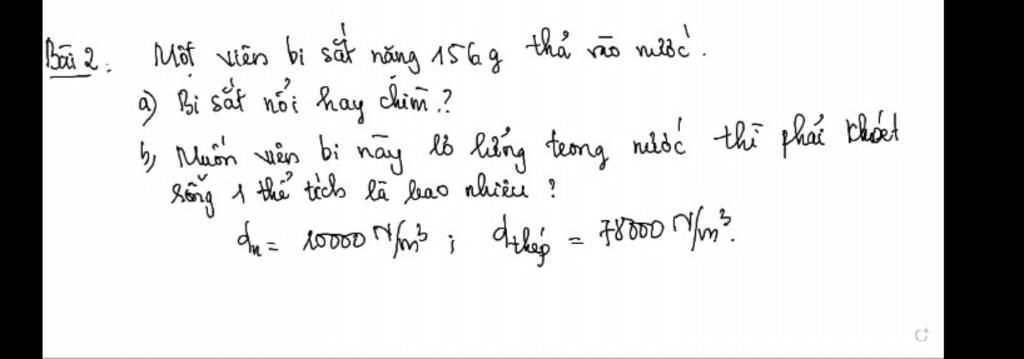 Bài 2: Một viên bi sắt nặng 156g thả vào nước.
a) Bi sắt nổi hay chìm?
b) Muốn viên bi này lơ lửng trong nước thì phải khoét
rỗng 1 thể tích là bao nhiêu?
dn = 10000 N/m³ ; dthép = 78000 N/m³.